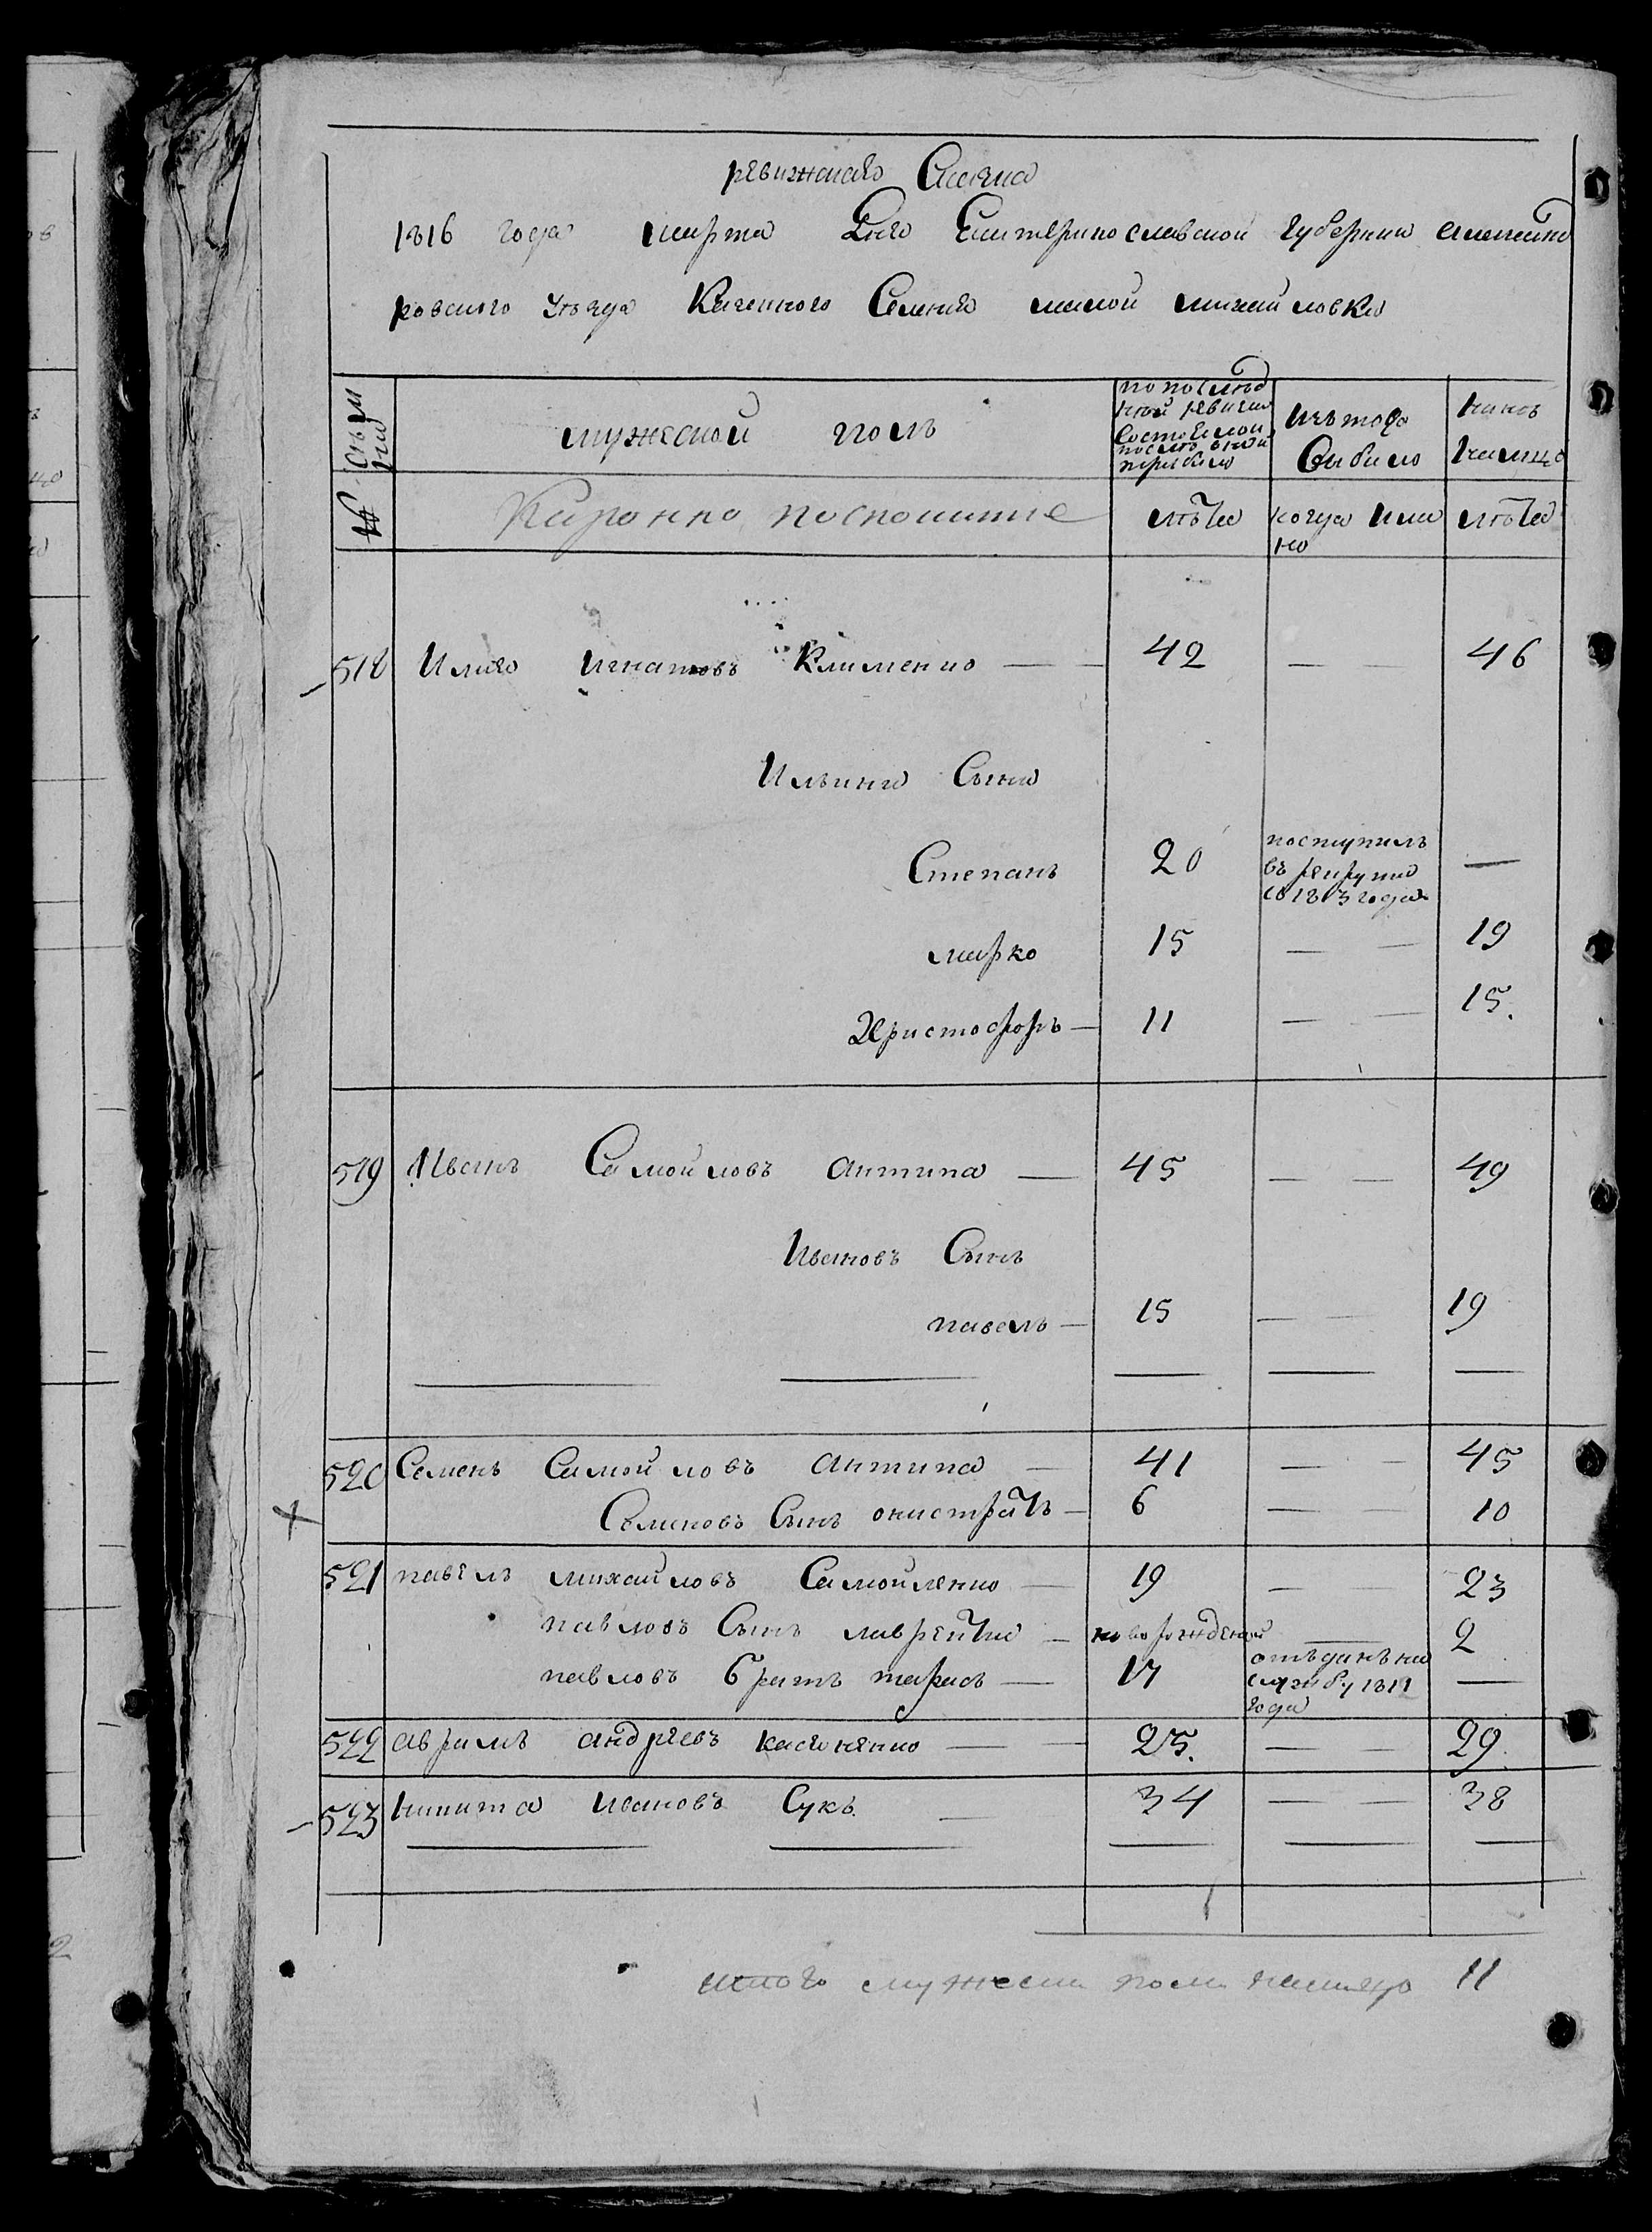 ревижская Сказка
1816 года марта Дня Екатеринославской губернии Александ
ровского уезда Казенного Селения малой михайловки
Семьи
мужеской полъ
по послед
ней ревизии
Состояло и
после оной
прибыло
Изъ того
Выбыло
ныне
на лицо
№
Каронно посполитие
лета
когда имен
но
лета
518 Илья Игнатовъ Клименко — — 42 — — 46
Ильини Сыни
Степанъ 20 поступилъ
въ рекруты
с 1813 года —
марко 15 — — 19
Христофоръ — 11 — — 15.
519 Иванъ Самойловъ антипа — 45 — — 49
Ивановъ Сынъ
павелъ — 15 — — 19
520 Семенъ Самойловъ антипа — 41 — — 45
Семеновъ Сынъ онистратъ — 6 — — 10
521 павелъ михайловъ Самойленко — 19 — 23
павловъ Сынъ лаврентий — новорожденой — 2
павловъ братъ тарасъ — 17 отъданъ на
службу 1812
года —
522 аврамъ андреевъ касяненко — — 25. — — 29.
523 никита Ивановъ Сукъ. — 34 — — 38
итого мужеска пола налицо 11